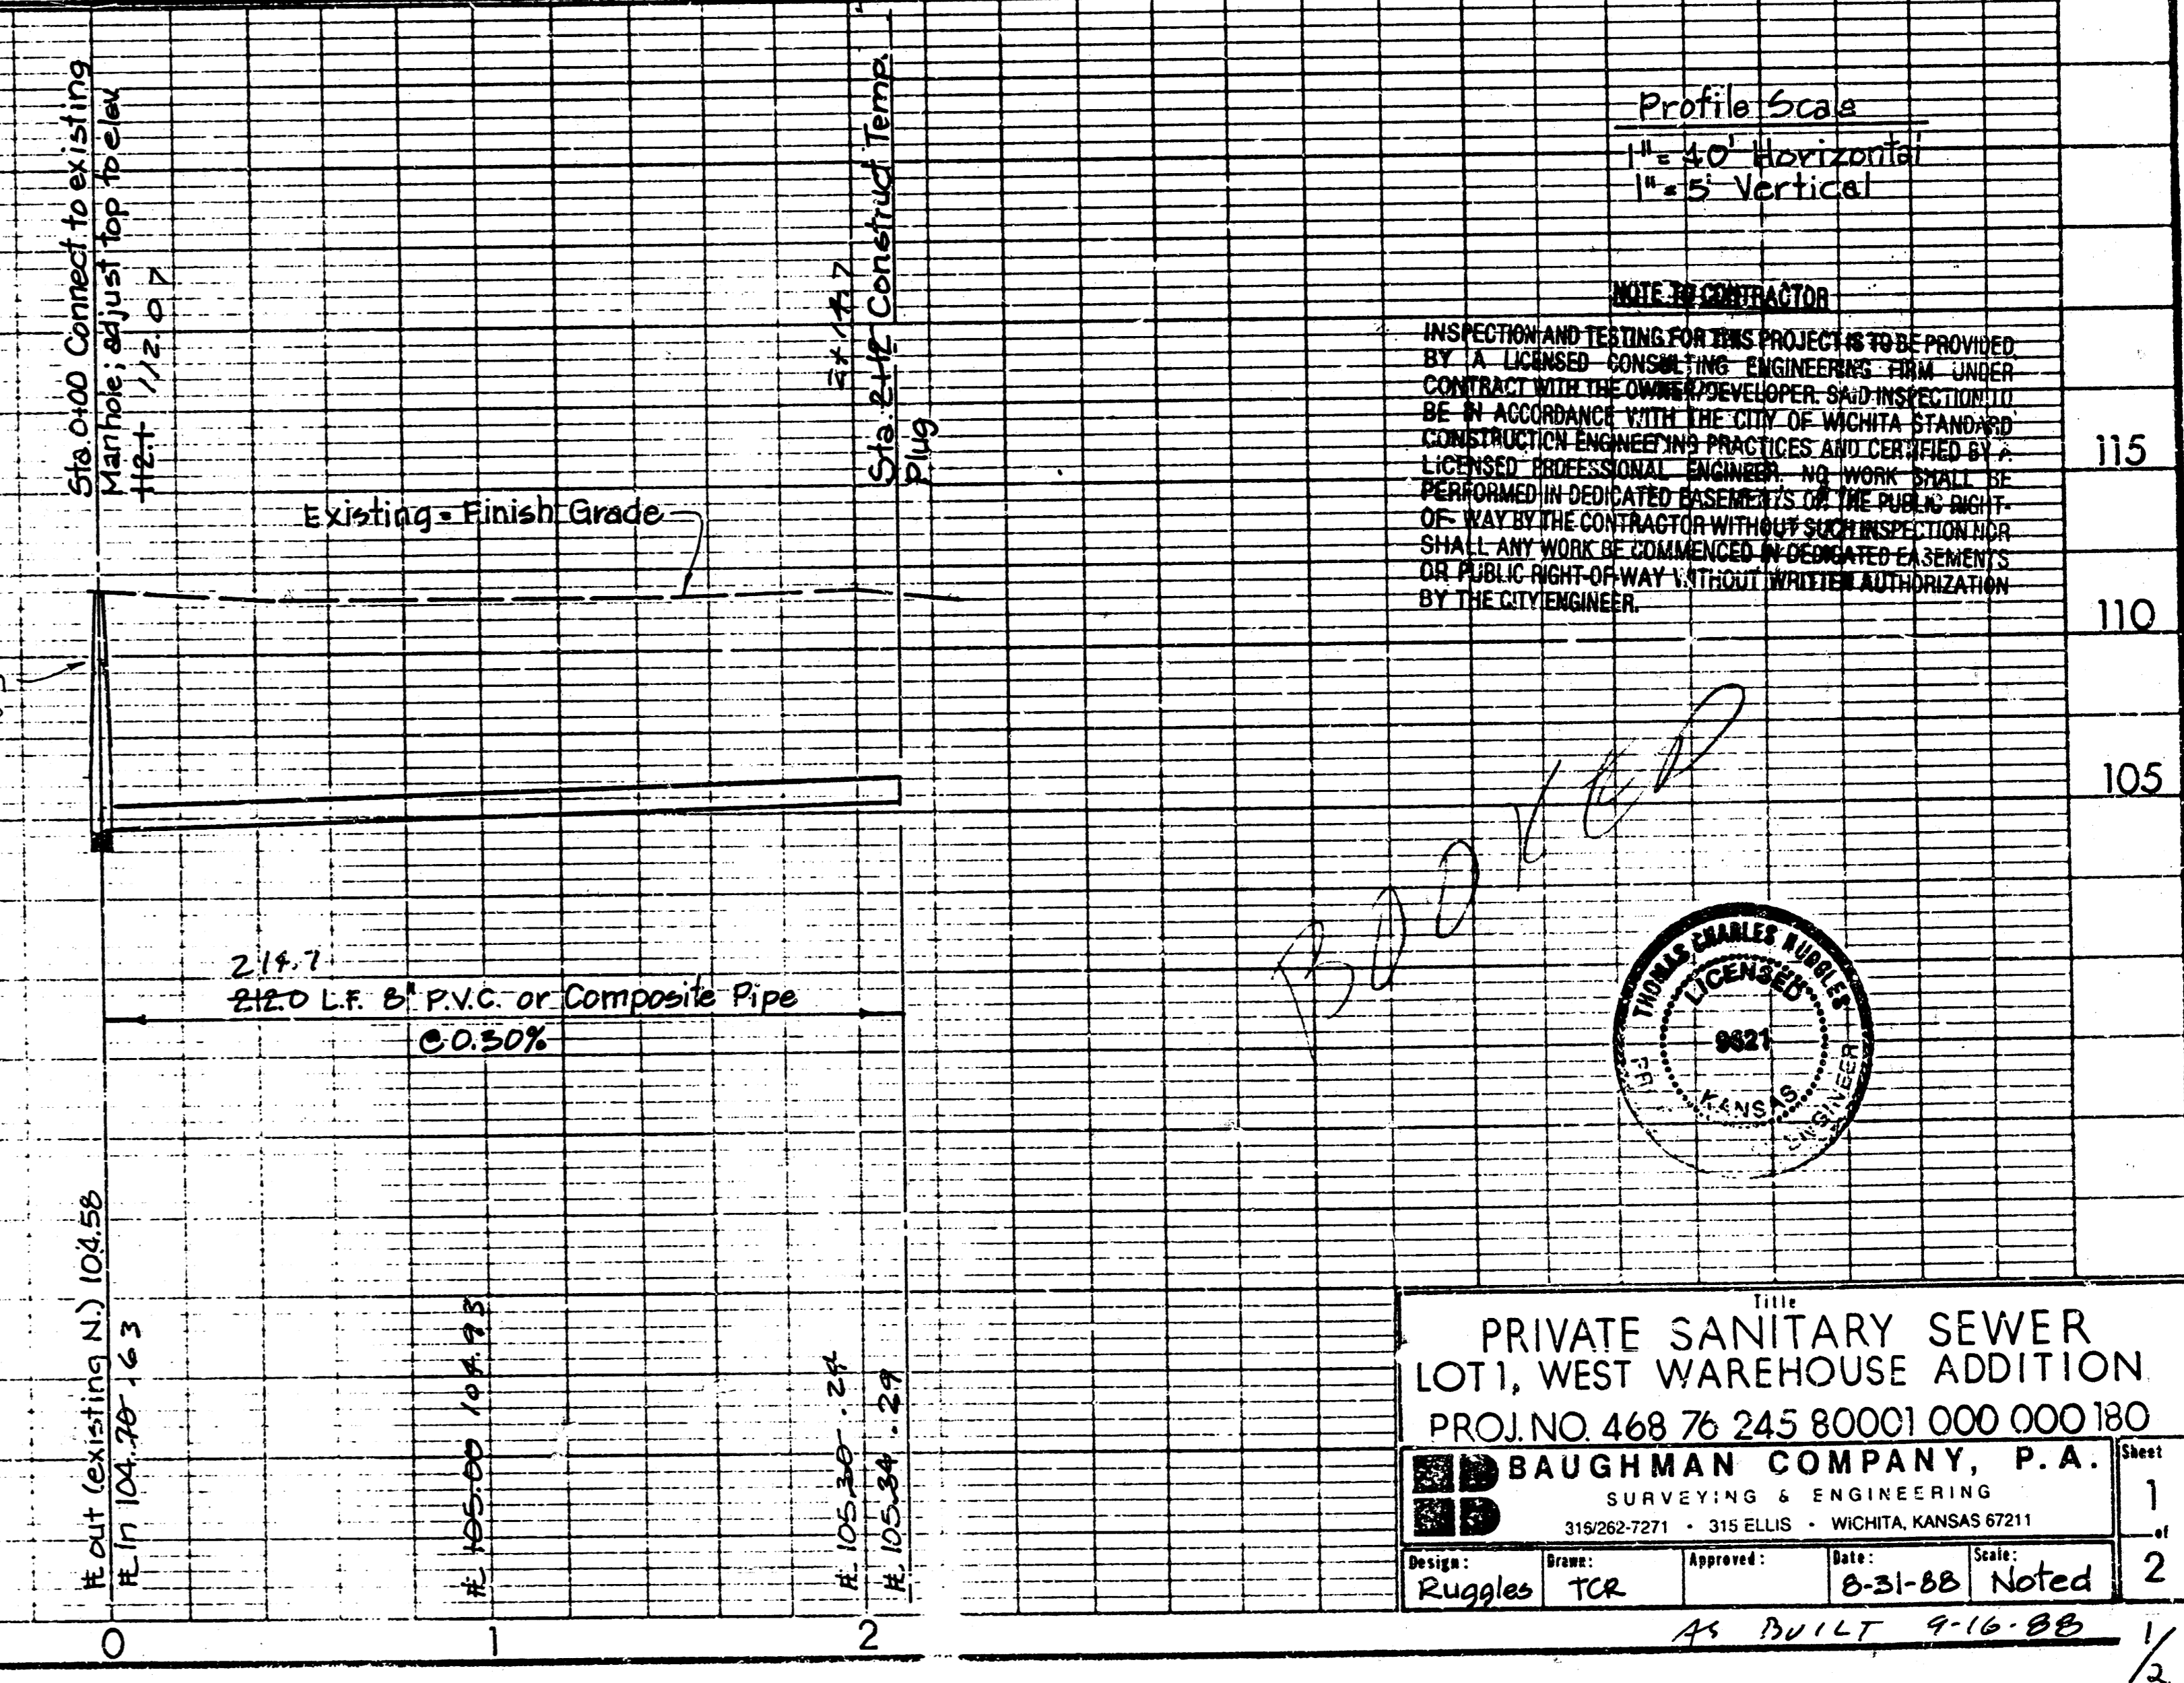 Sta. 0+00 Connect to existing
Manhole; adjust top to elev
112± 112.07
2+14.7
Sta. 2+12 Construct Temp.
Plug
Existing = Finish Grade
Profile Scae
1" = 40' Horizontal
1" = 5' Vertical
NOTE TO CONTRACTOR
INSPECTION AND TESTING FOR THIS PROJECT IS TO BE PROVIDED
BY A LICENSED CONSULTING ENGINEERING FIRM UNDER
CONTRACT WITH THE OWNER/DEVELOPER. SAID INSPECTION TO
BE IN ACCORDANCE WITH THE CITY OF WICHITA STANDARD
CONSTRUCTION ENGINEERING PRACTICES AND CERTIFIED BY A
LICENSED PROFESSIONAL ENGINEER. NO WORK SHALL BE
PERFORMED IN DEDICATED EASEMENTS OR THE PUBLIC RIGHT-
OF-WAY BY THE CONTRACTOR WITHOUT SUCH INSPECTION NOR
SHALL ANY WORK BE COMMENCED IN DEDICATED EASEMENTS
OR PUBLIC RIGHT-OF-WAY WITHOUT WRITTEN AUTHORIZATION
BY THE CITY ENGINEER.
115
110
105
214.7
212.0 L.F. 8" P.V.C. or Composite Pipe
@ 0.30%
BOOKED
THOMAS CHARLES RUGGLES
LICENSED
9621
KANSAS
ENGINEER
FL out (existing N.) 104.58
FL In 104.70 .63
FL 105.00 104.93
FL 105.30 .24
FL 105.34 .29
0
1
2
Title
PRIVATE SANITARY SEWER
LOT 1, WEST WAREHOUSE ADDITION
PROJ. NO. 468 76 245 80001 000 000 180
BAUGHMAN COMPANY, P.A.
SURVEYING & ENGINEERING
316/262-7271 • 315 ELLIS • WICHITA, KANSAS 67211
Sheet
1
of
2
Design: Ruggles
Drawn: TCR
Approved:
Date: 8-31-88
Scale: Noted
AS BUILT 9-16-88
1/2